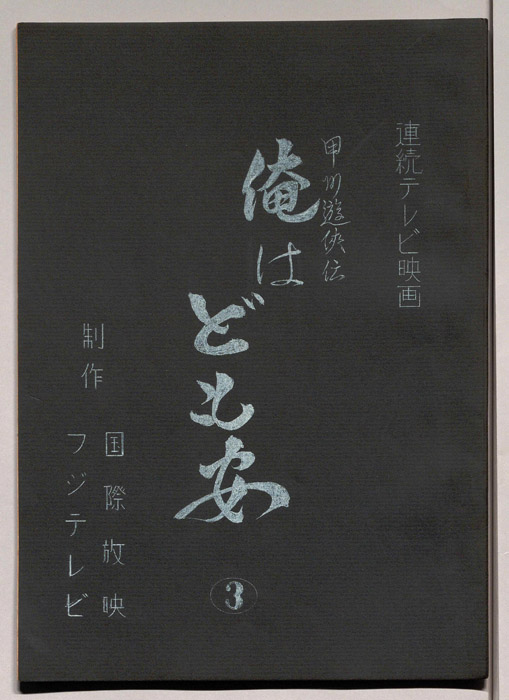 連続テレビ映画
甲州遊侠伝
俺は
ども安
3
制作
国際放映
フジテレビ